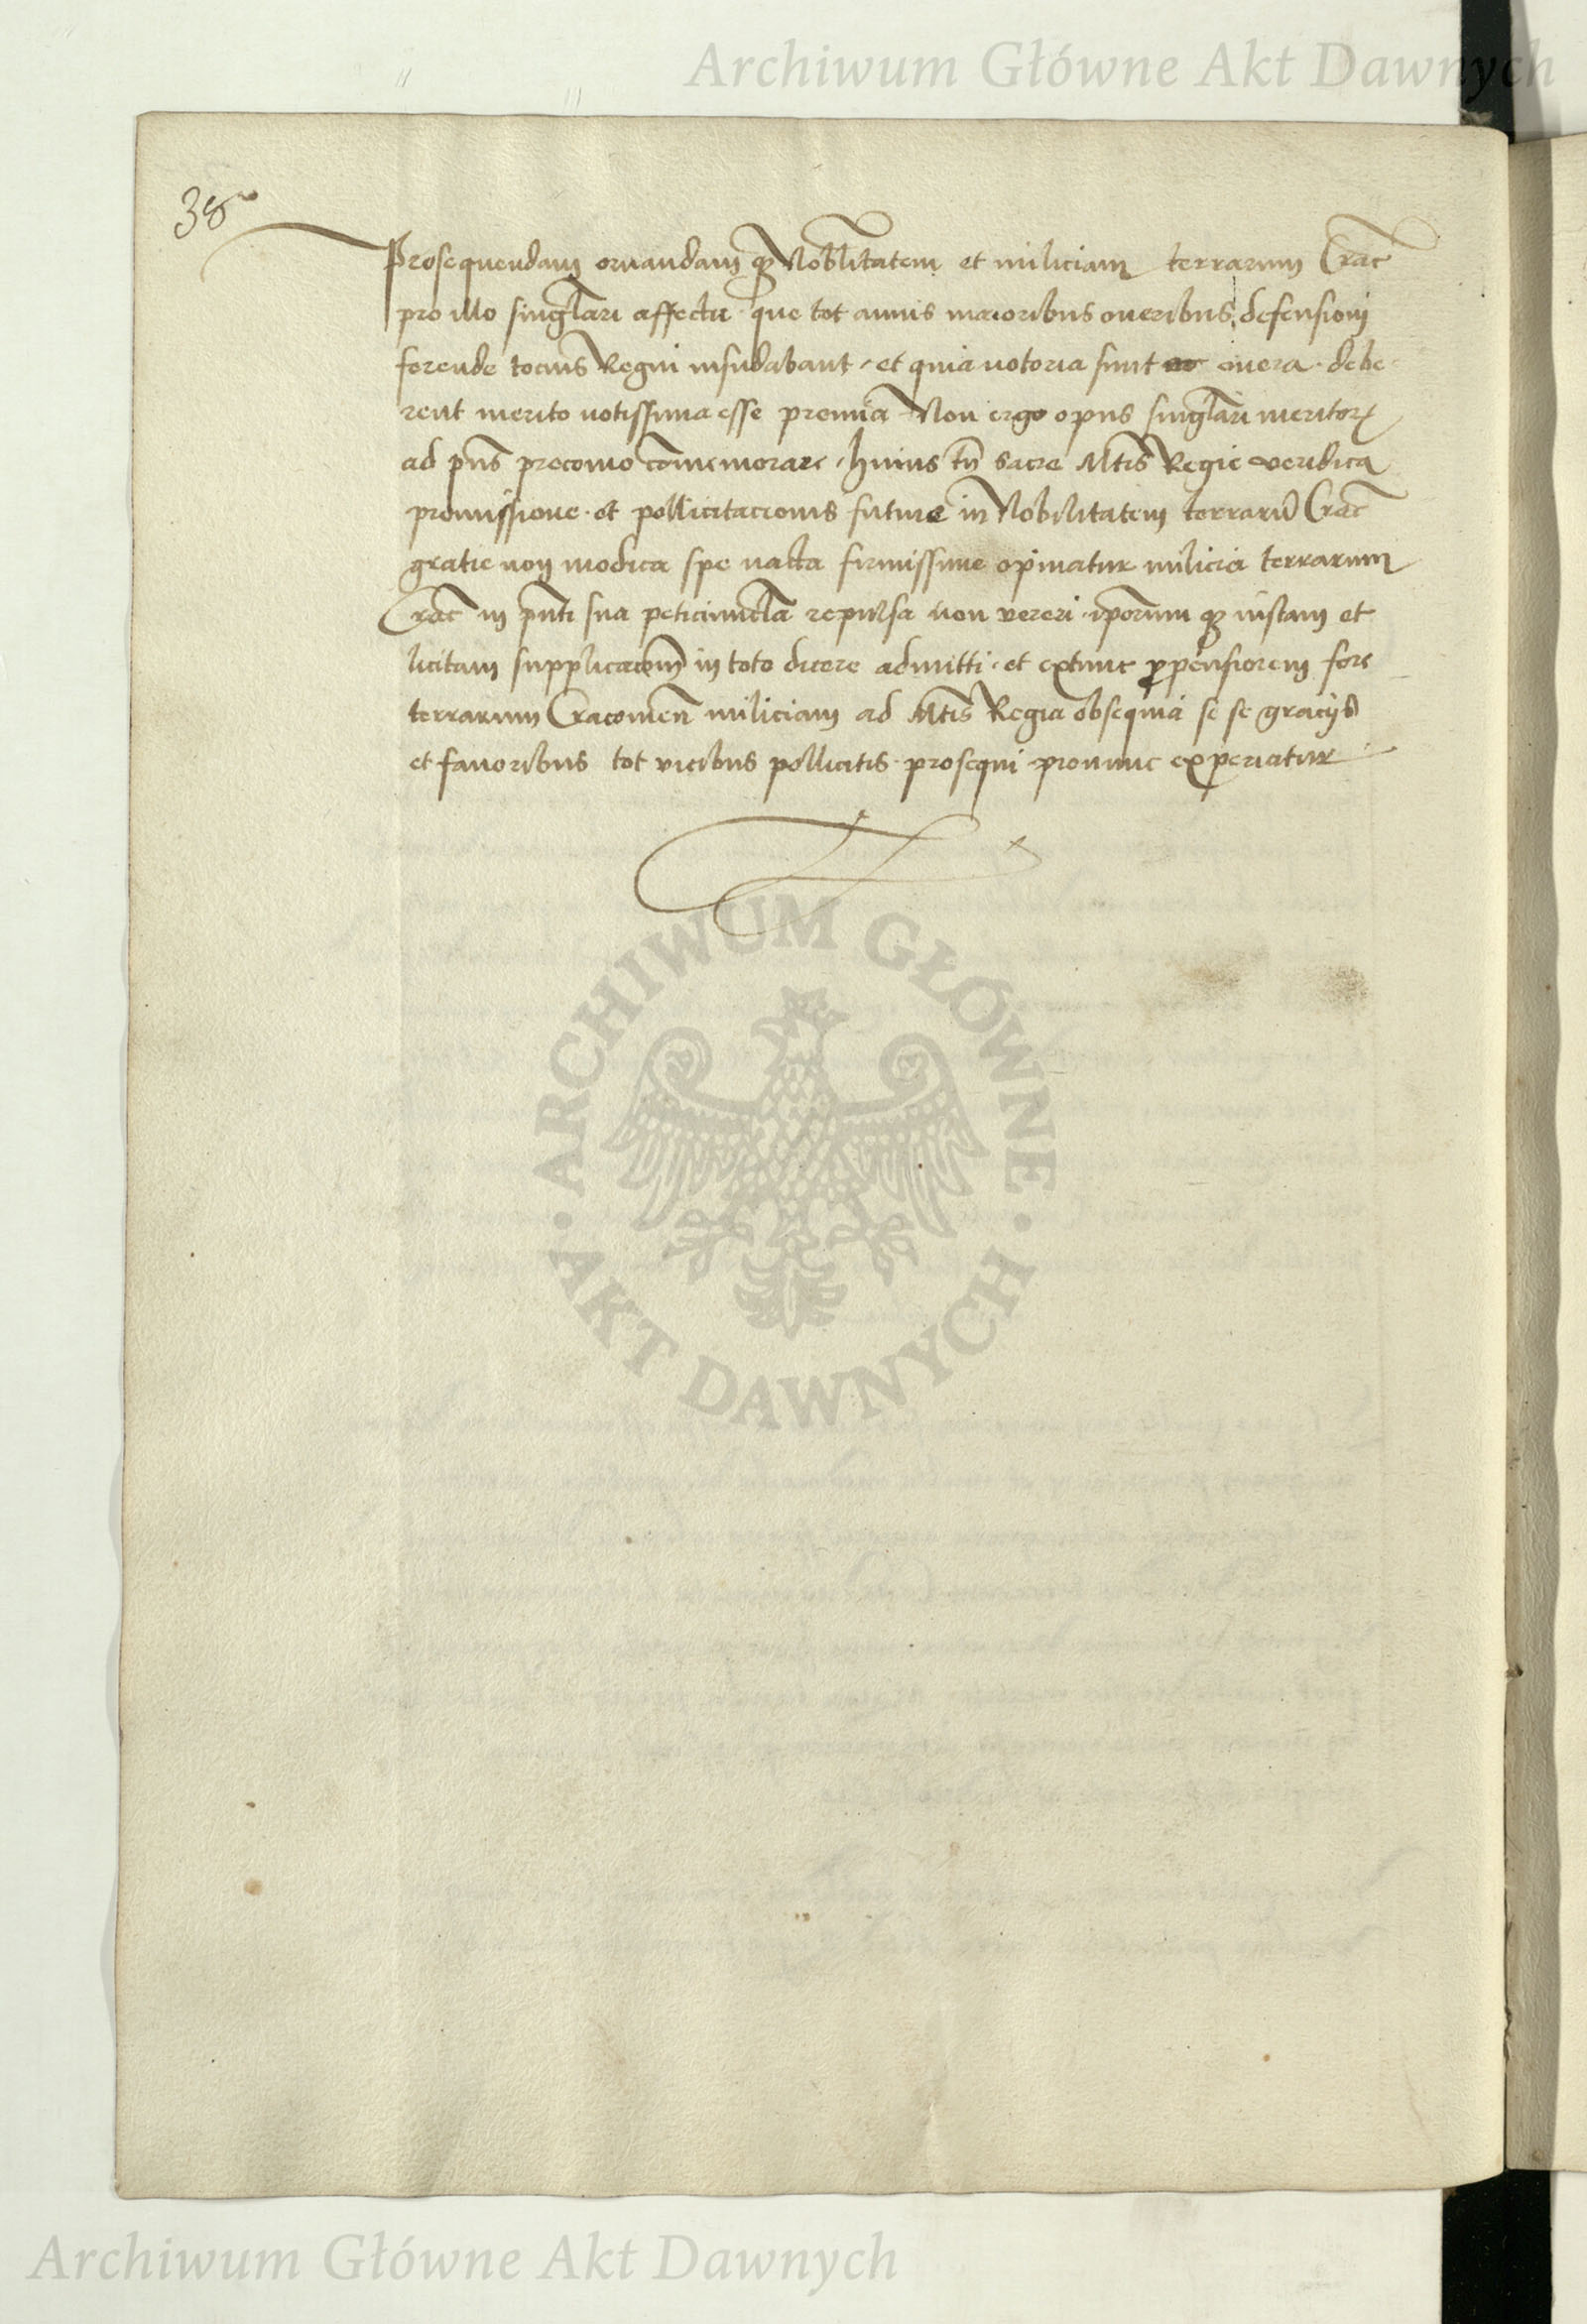 Archiwum Główne Akt Dawnych
38
Prosequendam ornandam qȝ Nobłitatem et miliciam terrarum Crac̄
pro illo singl̄ari affectu · que tot annis maioribus oneribus defensioni
ferende tocius Regni insudabant · et quia notoria sunt onera · debe-
rent merito notissima esse premia Non ergo opus singl̄ari meritoꝝ
ad pn̄s preconio com̄emorare · huius tn̄ sacre Mt̄is Regie veridica
promissione · et pollicitacionis future in Nobilitatem terrarū Crac̄
gratie non modica spe nacta firmissime opinatur milicia terrarum
Crac̄ in pn̄ti sua repulsa non vereri · ip̄orum qȝ iustam et
licitam supplicacōm̄ in toto dicere admitti · et extunc ꝓpensiorem fore
terrarum Cracouien̄ miliciam ad Mt̄is Regia obsequia se se gracijs
et fauoribus tot vicibus pollicitis prosequi pronunc experiatur
ARCHIWUM GŁÓWNE
AKT DAWNYCH
Archiwum Główne Akt Dawnych